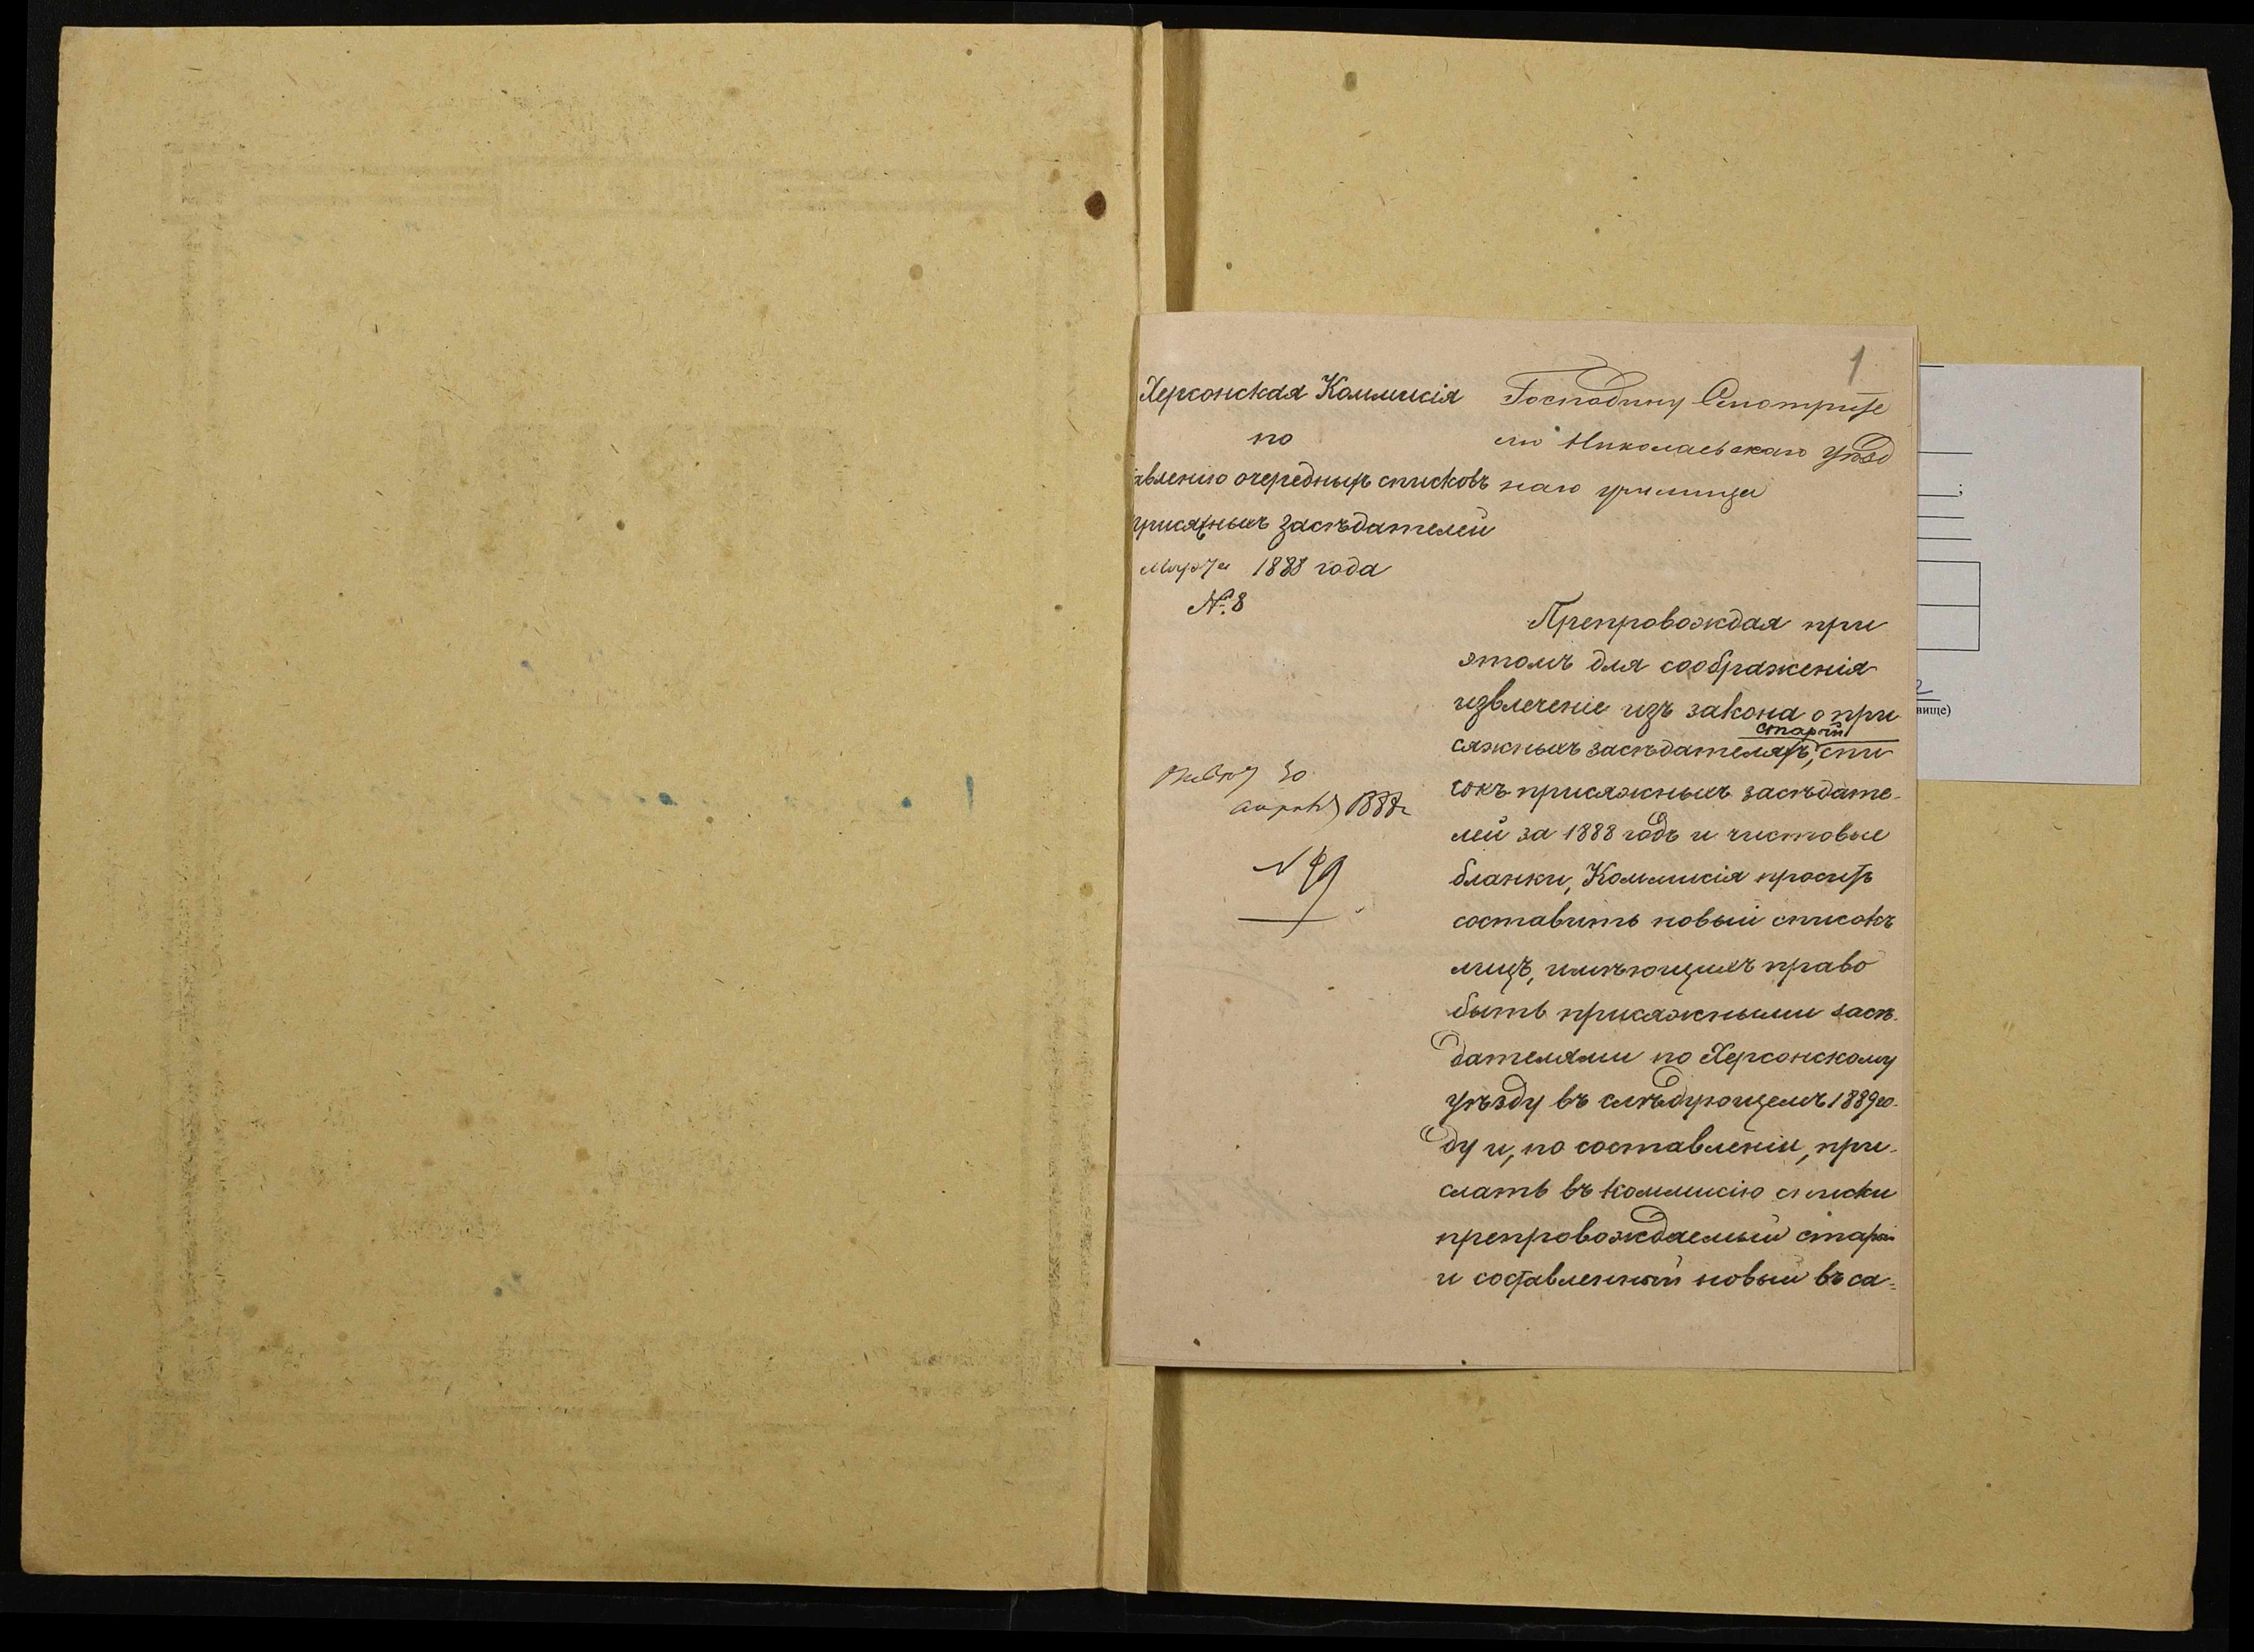 1
Херсонская Коммисія
по
авленію очередныхъ списковъ
присяжныхъ засѣдателей
Марта 1888 года
№ 8
Господину Смотрите
лю Николаевскаго Уѣзд
наго училища
Препровождая при
этомъ для соображенія
извлеченіе изъ закона о при
сяжныхъ засѣдателяхъ, старый спи
сокъ присяжныхъ засѣдате-
лей за 1888 годъ и чистовые
бланки, Коммисія проситъ
составить новый списокъ
лицъ, имѣющихъ право
быть присяжными засѣ-
дателями по Херсонскому
уѣзду въ слѣдующемъ 1889 го-
ду и, по составленіи, при-
слать въ коммисію списки
препровождаемый старый
и составленный новый въ са-
30
апрѣля 1888 г
вище)